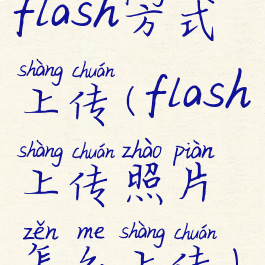 flash方式
shàng chuán
上传(flash
shàng chuán zhào piàn
上传照片
zěn me shàng chuán
怎么上传)